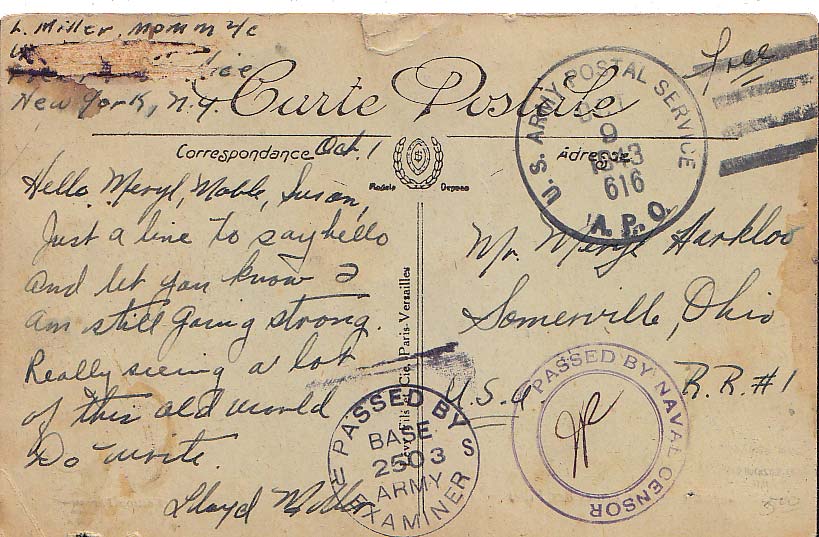 L. Miller. MOMM 2/c
New York, N.Y.
Free
Carte Postale
Correspondance Oct. 1
Adresse
Modele Depose
U.S. ARMY POSTAL SERVICE
OCT
9
1943
616
A.P.O.
Hello Meryl, Noble, Susan,
Just a line to say hello
and let you know I
am still going strong.
Really seeing a lot
of this old world
Do write.
Lloyd Miller
Fils & Cie, Paris-Versailles
Mr. Meryl
Somerville, Ohio
R.R. #1
U.S.A
PASSED BY
BASE
2503
ARMY
EXAMINER
PASSED BY NAVAL CENSOR